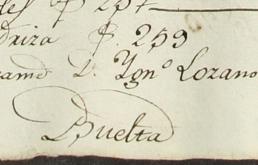 237
driza $ 259
D.n Ygn.o Lozano
Buelta